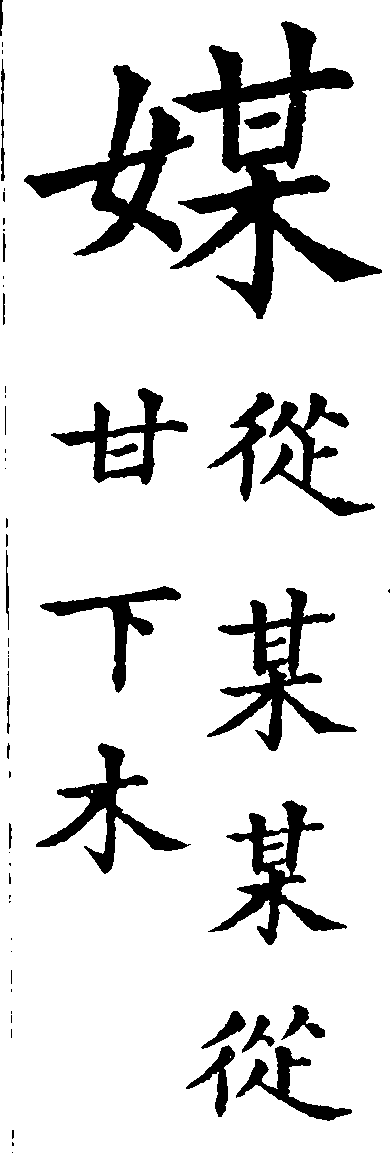 媒
從某某從
甘下木